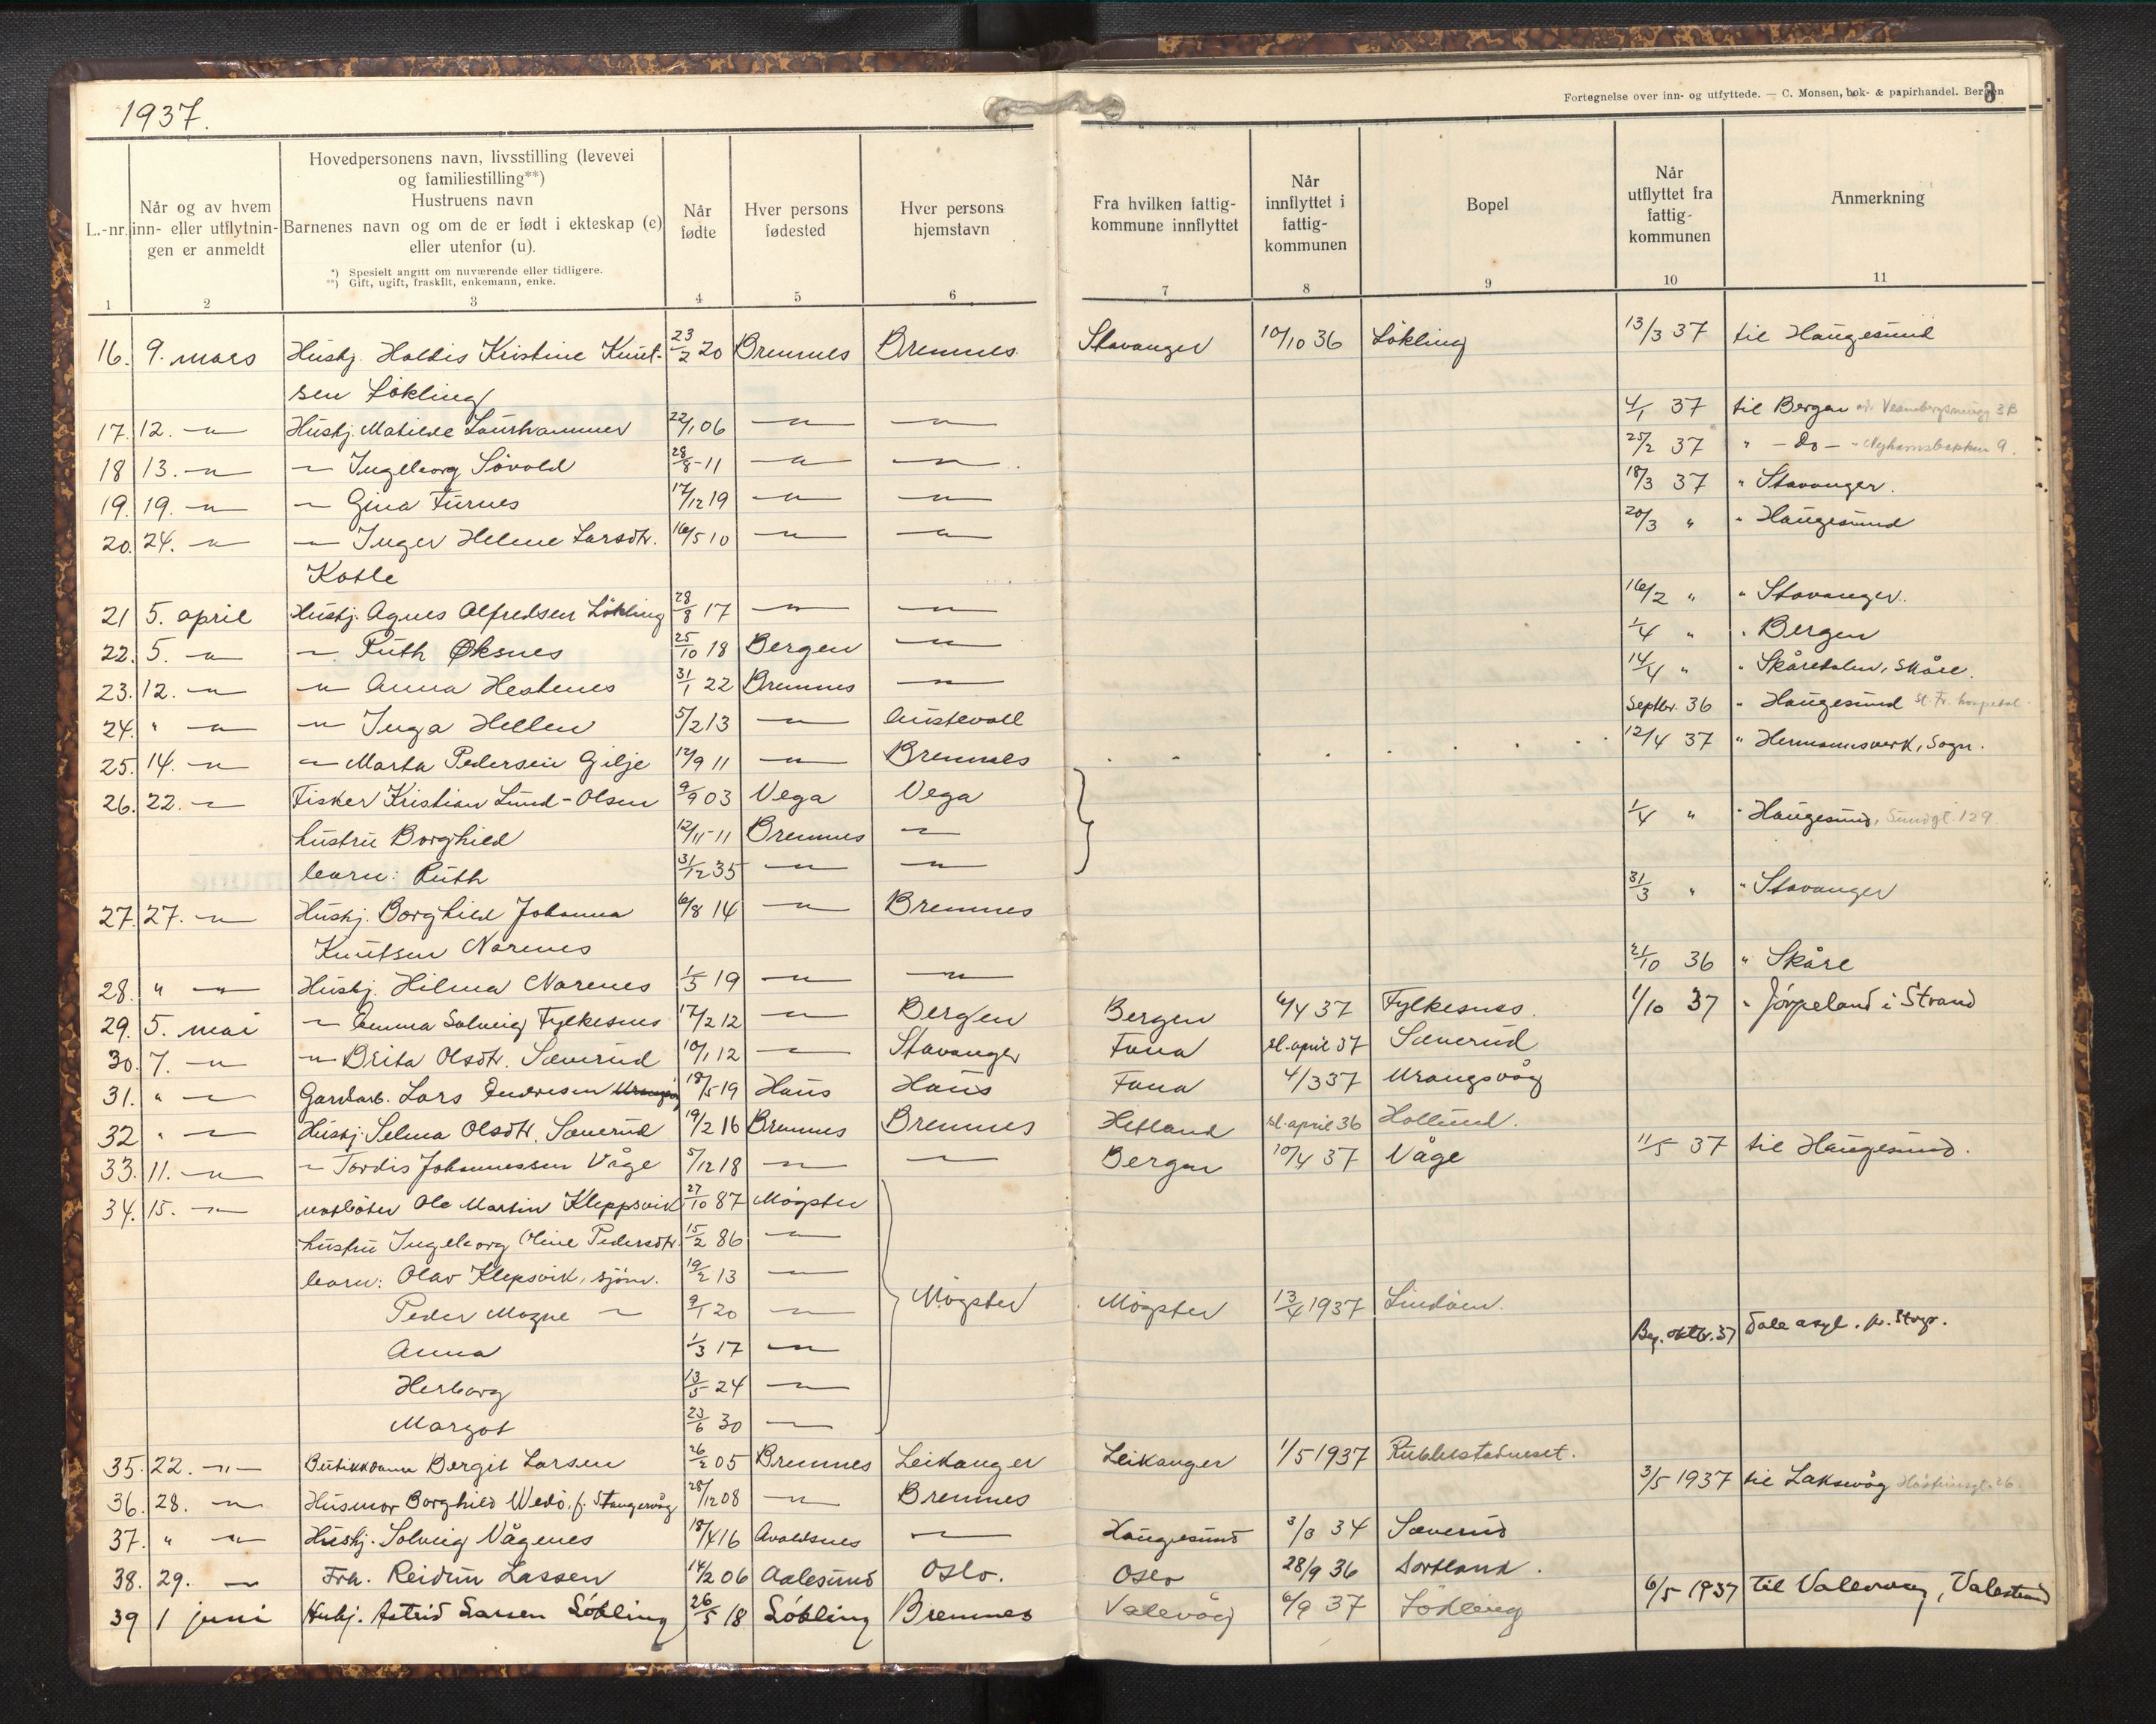 1937.
Fortegnelse over inn- og utflyttede. — C. Monsen, bok- & papirhandel. Bergen
3
L.-nr.
Når og av hvem inn- eller utflytningen er anmeldt
Hovedpersonens navn, livsstilling (levevei og familiestilling**)
Hustruens navn
Barnenes navn og om de er født i ekteskap (e) eller utenfor (u).
*) Spesielt angitt om nuværende eller tidligere.
**) Gift, ugift, fraskilt, enkemann, enke.
Når fødte
Hver persons fødested
Hver persons hjemstavn
Fra hvilken fattigkommune innflyttet
Når innflyttet i fattigkommunen
Bopel
Når utflyttet fra fattigkommunen
Anmerkning
1 2 3 4 5 6 7 8 9 10 11
16. 9. mars Hushj. Haldis Kristine Knut- 23/2 20 Bremnes Bremnes Stavanger 10/10 36 Løkling 13/3 37 til Haugesund
sen Løkling
17. 12. -"- Hushj. Matilde Laurhammer 22/1 06 -"- -"- 4/1 37 til Bergen 3B
18 13. -"- -"- Ingeborg Søvold 28/8-11 -"- -"- 25/2 37 " -do- 9.
19. 19. -"- -"- Gina Turnes 17/12 19 -"- -"- 18/3 37 " Stavanger.
20. 24. -"- -"- Inger Helene Larsdtr. 16/5 10 -"- -"- 20/3 " " Haugesund
Katle
21 5. april Hushj. Agnes Alfredsen Løkling 28/8 17 -"- -"- 16/2 " " Stavanger.
22. 5. -"- -"- Ruth Øksnes 25/10 18 Bergen -"- 1/4 " " Bergen
23. 12. -"- -"- Anna Hestenes 31/1 22 Bremnes -"- 14/4 " " Skåredalen, Skåre.
24. " -"- -"- Inga Hellen 5/2 13 -"- Austevoll Septbr. 36 " Haugesund St. Fr. hospital.
25. 14. -"- -"- Marta Pedersen Gilje 12/9 11 -"- Bremnes 12/4 37 " Hermansverk, Sogn.
26. 22. -"- Fisker Kristian Lund-Olsen 9/9 03 Vega Vega 1/4 " " Haugesund, Sundgt. 129
hustru Borghild 12/11-11 Bremnes -"-
barn: Ruth 31/12 35 -"- -"-
27. 27. -"- Hushj. Borghild Johanna 6/8 14 -"- Bremnes 31/3 " " Stavanger
Knutsen Narenes
28. " -"- Hushj. Hilma Narenes 1/5 19 -"- -"- 2/10 36 " Skåre
29. 5. mai -"- Emma Solveig Fylkesnes 17/2 12 -"- Bergen Bergen 6/4 37 Fylkesnes. 1/10 37 " Jørpeland i Strand
30. 7. -"- -"- Brita Olsdtr. Sæverud 10/1 12 -"- Stavanger Fana sl. april 37 Sæverud
31. " -"- Gardarb. Lars Endresen 18/5 19 Haus Haus Fana 4/3 37 Urangsvåg
32 " -"- Hushj. Selma Olsdtr. Sæverud 19/2 16 Bremnes Bremnes Hetland sl. april 36 Hollund.
33. 11. -"- -"- Tordis Johannessen Våge 5/12 18 -"- -"- Bergen 10/4 37 Våge 11/5 37 til Haugesund.
34. 15. -"- notbøter Ole Martin Kleppsvik 27/10 87 Møgster
hustru Ingeborg Oline Pedersdtr. 15/2 86 -"-
barn: Olav Klepsvik, sjøm. 19/2 13 -"-
Peder Mogne -"- 9/1 20 -"- Møgster Møgster 13/4 1937 Lindøen.
Anna 1/3 17 -"- Beg. oktbr. 37 Dale asyl. p. Stvgr.
Herborg 13/5 24 -"-
Margot 23/6 30 -"-
35. 22. -"- Butikkdame Bergit Larsen 26/2 05 Bremnes Leikanger Leikanger 1/5 1937 Rubbestadneset.
36. 28. -"- Husmor Borghild Wedø, f. Stangervåg 28/12 08 -"- Bremnes 3/5 1937 til Laksevåg
37. " -"- Hushj. Solveig Vågenes 18/4 16 Avaldsnes -"- Haugesund 3/8 34 Sæverud
38. 29. -"- Frk. Reidun Lassen 14/2 06 Aalesund Oslo. Oslo 28/9 36 Sortland.
39 1 juni Hushj. Astrid Larsen Løkling 26/5 18 Løkling Bremnes Valevåg 6/9 37 Løkling 6/5 1937 Til Valevaag, Valestrand